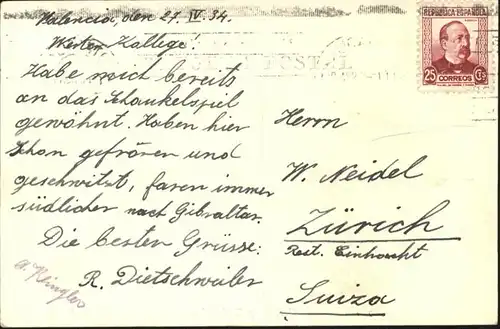 Valencia, den 27. IV. 34.
Werter Kollege!
Habe mich bereits
an das Schaukelspiel
gewöhnt. Haben hier
schon gefroren und
geschwitzt, faren immer
südlicher nach Gibraltar.
Die besten Grüsse:
R. Dietschweiler
REPUBLICA ESPAÑOLA
25 CTS
CORREOS
Herrn
W. Neidel
Zürich
Rest. Einhorn
Suiza